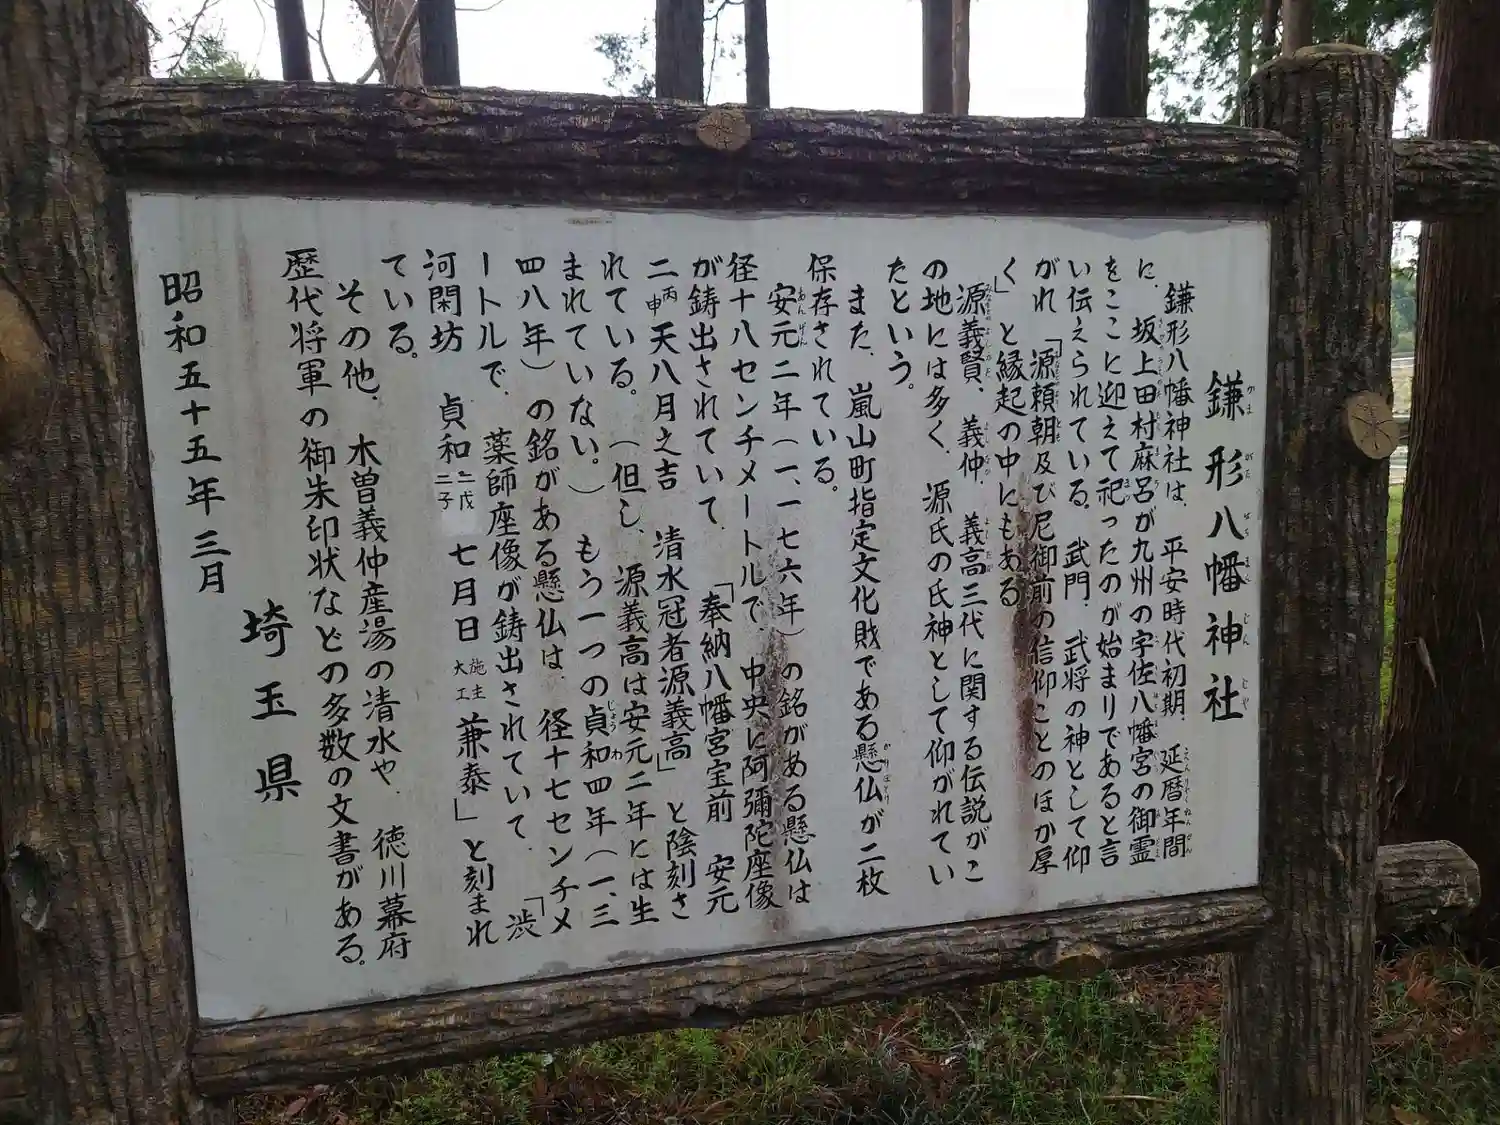 鎌形八幡神社
鎌形八幡神社は、平安時代初期、延暦年間
に、坂上田村麻呂が九州の宇佐八幡宮の御霊
をここに迎えて祀ったのが始まりであると言
い伝えられている。武門、武将の神として仰
がれ「源頼朝及び尼御前の信仰ことのほか厚
く」と縁起の中にもある
源義賢、義仲、義高三代に関する伝説がこ
の地には多く、源氏の氏神として仰がれてい
たという。
また、嵐山町指定文化財である懸仏が二枚
保存されている。
安元二年（一、一七六年）の銘がある懸仏は
径十八センチメートルで、中央に阿彌陀座像
が鋳出されていて、「奉納八幡宮宝前 安元
二丙申天八月之吉 清水冠者源義高」と陰刻さ
れている。（但し、源義高は安元二年には生
まれていない。）もう一つの貞和四年（一、三
四八年）の銘がある懸仏は、径十七センチメ
ートルで、薬師座像が鋳出されていて、「渋
河閑坊 貞和二戊二子 七月日 施主大工 兼泰」と刻まれ
ている。
その他、木曽義仲産湯の清水や、徳川幕府
歴代将軍の御朱印状などの多数の文書がある。
埼玉県
昭和五十五年三月